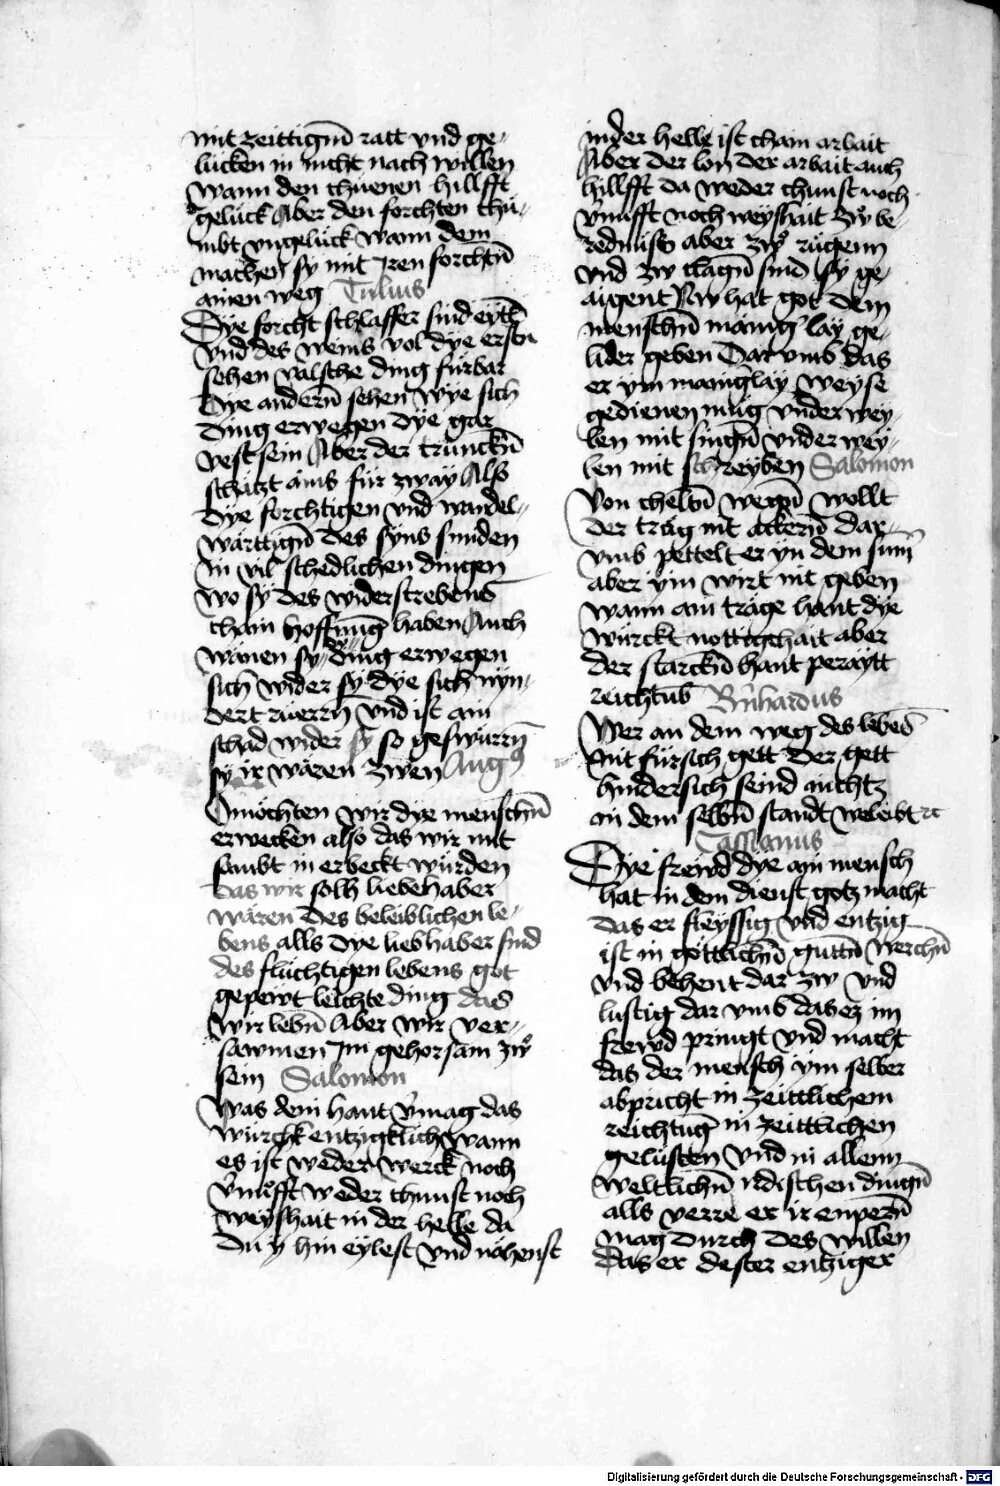 mit zeittigm̄ ratt vnd ge-
lucken in nicht nach willen
wann den chüenen hillfft
gelück Aber den forchten chü-
mbt vngelück wann dem
machen sy mit Iren forchtn̄
ainen weg Tulius
Dye forcht schlaffer sind eytl̄
vnd des weins vol dye erstn
sehen valsche ding fürbar
Dye andern̄ sehen wye sich
ding erwegen dye gar
vest sein Aber der trunckn̄
schäczt ains für zway Also
dye forchtigen vnd wandel-
warttign̄ des syns sinden
in vil schedlichen dingen
wo sy des widerstrebens
chain hoffnūg haben Auch
wänen sy dye ding erwegen
sich wider sy dye sich nyn-
dert rüerrn̄ Vnd ist ain
schad wider sy so geswurrn̄
sy ir wären zwen Augꝰ
O möchten wir dye menschn̄
erwecken also das wir mit
sambt in erbeckt würden
das wir solh liebenhaber
wären des beleiblichen le-
bens alls dye liebhaber sind
des flüchtigen lebens got
gepewt leichte ding das
wir lebn̄ Aber wir ver-
sawmen Im gehorsam zẘ
sein Salomon
Was dein hant v̄mag das
würchk entzigklich wann
es ist weder werck noch
v̄nufft weder chunst noch
weyshait in der helle da
du yͤ hin eylest vnd nöhenst
in der helle ist chain arbait
Aber der lon der arbait auch
hillfft da weder chunst noch
v̄nufft noch weyshait zẘ be-
rednus aber zẘ rügenn
vnd zw clagn̄ sind sy ge-
aigent Nw hat got dem
menschn̄ mänig lay ge-
lider geben Dar vmb das
er ym maniglay weyse
gedienen mug vnder wey-
len mit singn̄ vnder wey-
len mit schreyben Salomon
Von cheltn̄ wegn̄ wollt
der träg nit ackern̄ dar-
vmb pettelt er yn dem sum̄
aber ym wirt nit geben
wann ain träge hant dye
würckt nottigchait aber
der starckn̄ hant peraytt
reichtub Bn̄hardus
Wer an dem weg des lebēs
Nit fürsich gett der gett
hindersich seind nichtz
in dem selbn̄ standt weleibt ꝛc
Cassianus
Dye frewd dye ain mensch
hat in dem dienst gotz macht
das er fleyssig vnd entzig
ist in göttlichn̄ guttn̄ werchn̄
vnd behent dar zw vnd
lustig dar vmb das ez im
frewd pringt vnd macht
das der mensch ym selber
abpricht in zeittlichem
reichtūg in zeittlichen
gelüsten vnd in allenn
weltlichn̄ irdischen dingn̄
alls verre er ir enpern̄
mag durch des willen
Das er dester entziger
Digitalisierung gefördert durch die Deutsche Forschungsgemeinschaft - DFG